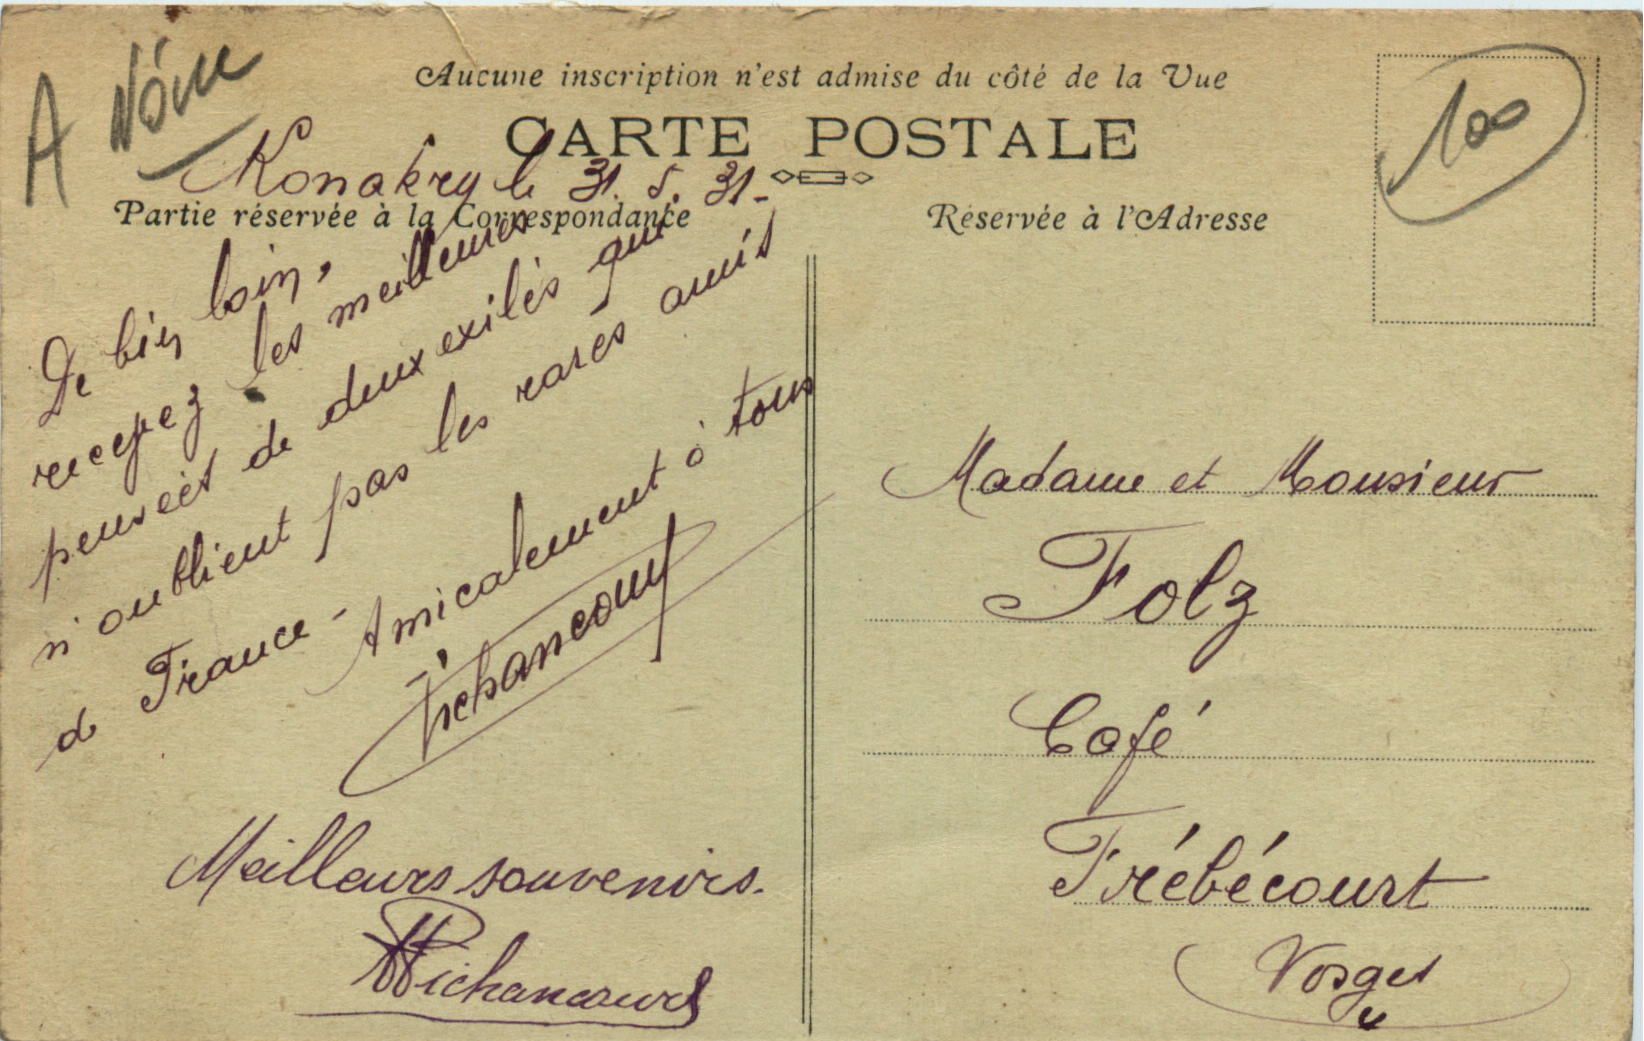 A
100
Aucune inscription n'est admise du côté de la Vue
CARTE POSTALE
Konakry le 31. 5. 31.
Partie réservée à la Correspondance
Réservée à l'Adresse
De bien loin,
recevez les meilleures
pensées de deux exilés qui
n'oublient pas les rares amis
de France - Amicalement à tous
Pichancourt
Meilleurs souvenirs.
Pichancourt
Madame et Monsieur
Folz
Café
Frébécourt
Vosges